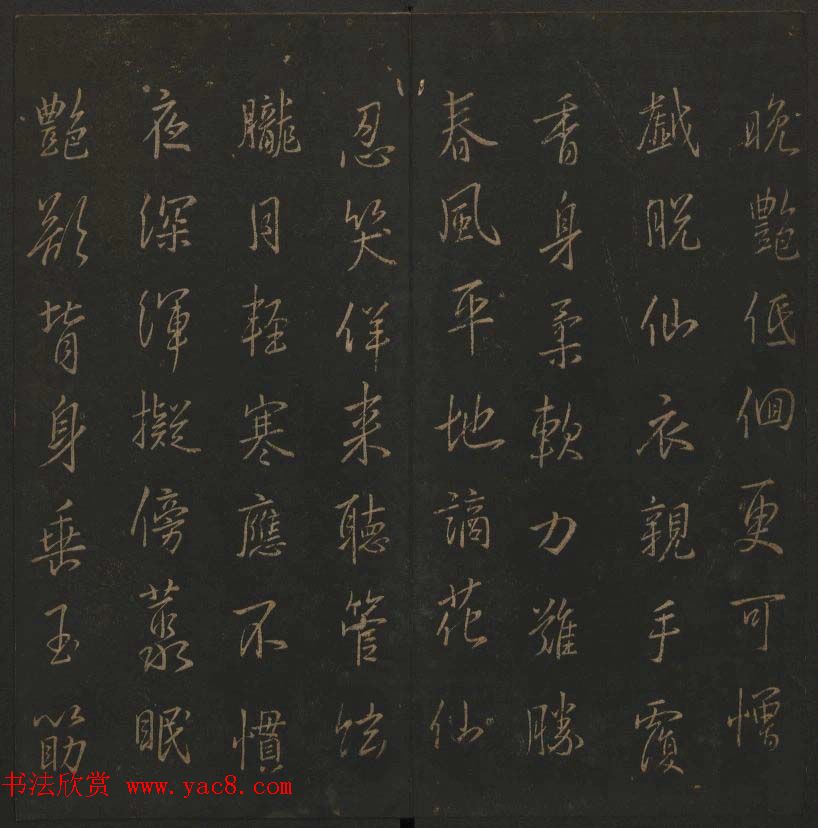 晚艷低佪更可憎
戲脫仙衣親手覆
香身柔軟力難勝
春風平地謫花仙
忍笑佯来聽管弦
朧月軽寒應不慣
夜深渾擬傍叢眠
艷歌背身垂玉筯
书法欣赏 www.yac8.com